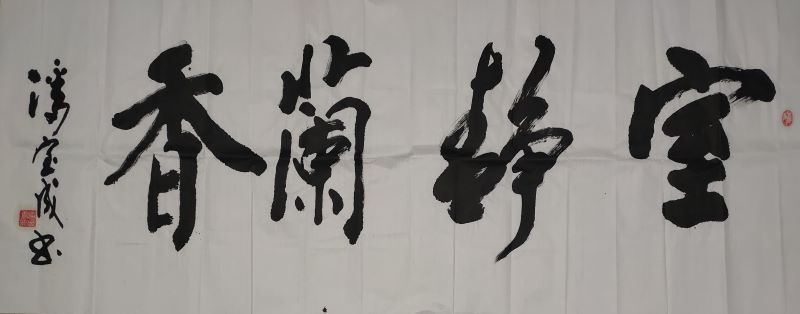 室静蘭香
潘宝成书